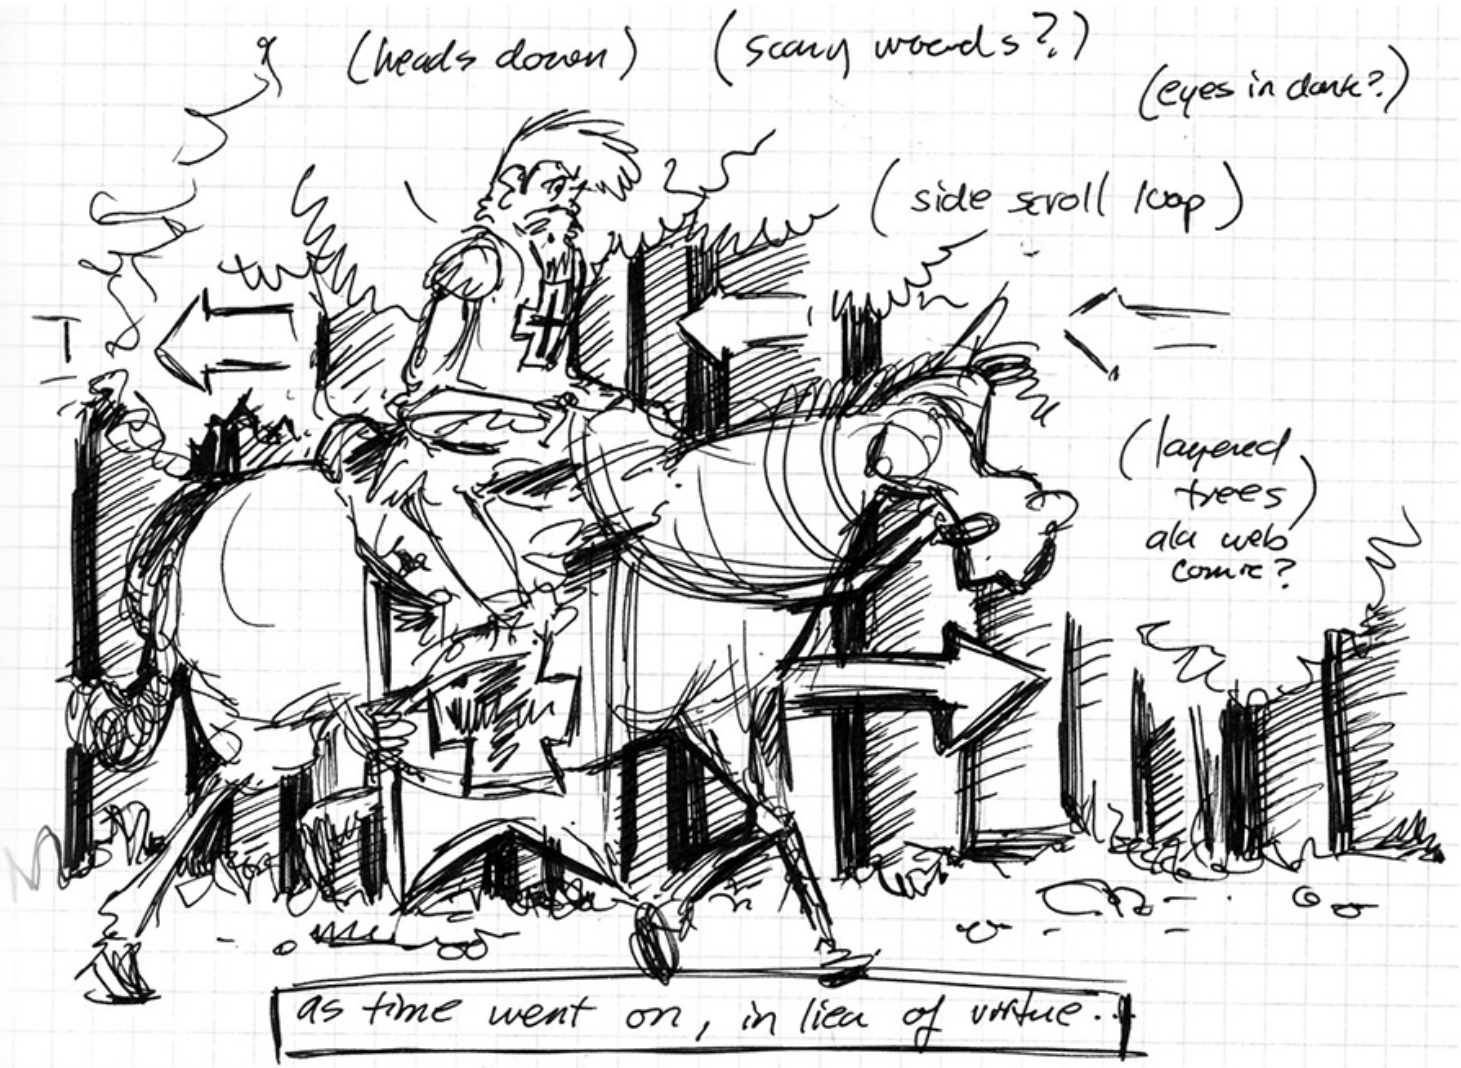 (heads down)
(scary woods?)
(eyes in dark?)
(side scroll loop)
(layered
trees)
ala web
comic?
as time went on, in lieu of virtue..